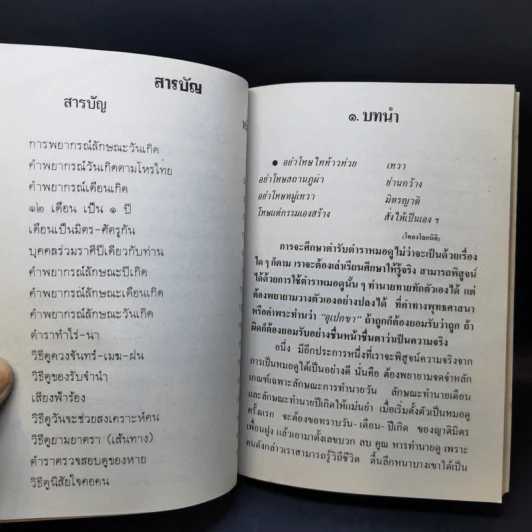 สารบัญ
สารบัญ
การพยากรณ์ลักษณะวันเกิด
คำพยากรณ์วันเกิดตามโหรไทย
คำพยากรณ์เดือนเกิด
๑๒ เดือน เป็น ๑ ปี
เดือนเป็นมิตร-ศัตรูกัน
บุคคลร่วมราศีปีเดียวกับท่าน
คำพยากรณ์ลักษณะปีเกิด
คำพยากรณ์ลักษณะเดือนเกิด
คำพยากรณ์ลักษณะวันเกิด
ตำราทำไร่-นา
วิธีดูดวงจันทร์-เมฆ-ฝน
วิธีดูของรับจำนำ
เสียงฟ้าร้อง
วิธีดูวันจะช่วยสงเคราะห์คน
วิธีดูยามยาตรา (เส้นทาง)
ตำราตรวจสอบดูของหาย
วิธีดูนิสัยใจคอคน
๑. บทนำ
● อย่าโทษไทท้าวท่วย เทวา
อย่าโทษสถานภูผา ย่านกว้าง
อย่าโทษหมู่เทวา มิตรญาติ
โทษแต่กรรมเองสร้าง ส่งให้เป็นเอง ฯ
(โคลงโลกนิติ)
การจะศึกษาตำรับตำราหมอดูไม่ว่าจะเป็นด้วยเรื่อง
ใด ๆ ก็ตาม เราจะต้องเล่าเรียนศึกษาให้รู้จริง สามารถพิสูจน์
ได้ด้วยการใช้ตำราหมอดูนั้น ๆ ทำนายทายทักตัวเองได้ แต่
ต้องพยายามวางตัวเองอย่างปลงได้ ที่คำทางพุทธศาสนา
หรือคำพระท่านว่า "อุเปกขา" ถ้าถูกก็ต้องยอมรับว่าถูก ถ้า
ผิดก็ต้องยอมรับอย่างชื่นหน้าชื่นตาว่าเป็นความจริง
อนึ่ง มีอีกประการหนึ่งที่เราจะพิสูจน์ความจริงจาก
การเป็นหมอดูได้เป็นอย่างดี นั่นคือ ต้องพยายามจดจำหลัก
เกณฑ์เฉพาะลักษณะการทำนายวัน ลักษณะทำนายเดือน
และลักษณะทำนายปีเกิดให้แม่นยำ เมื่อเริ่มตั้งตัวเป็นหมอดู
ครั้งแรก จะต้องขอทราบวัน-เดือน-ปีเกิด ของญาติมิตร
เพื่อนฝูง แล้วเอามาตั้งเลขบวก ลบ คูณ หารทำนายดู เพราะ
คนดังกล่าวเราสามารถรู้วิถีชีวิต ตื้นลึกหนาบางเขาได้เป็น